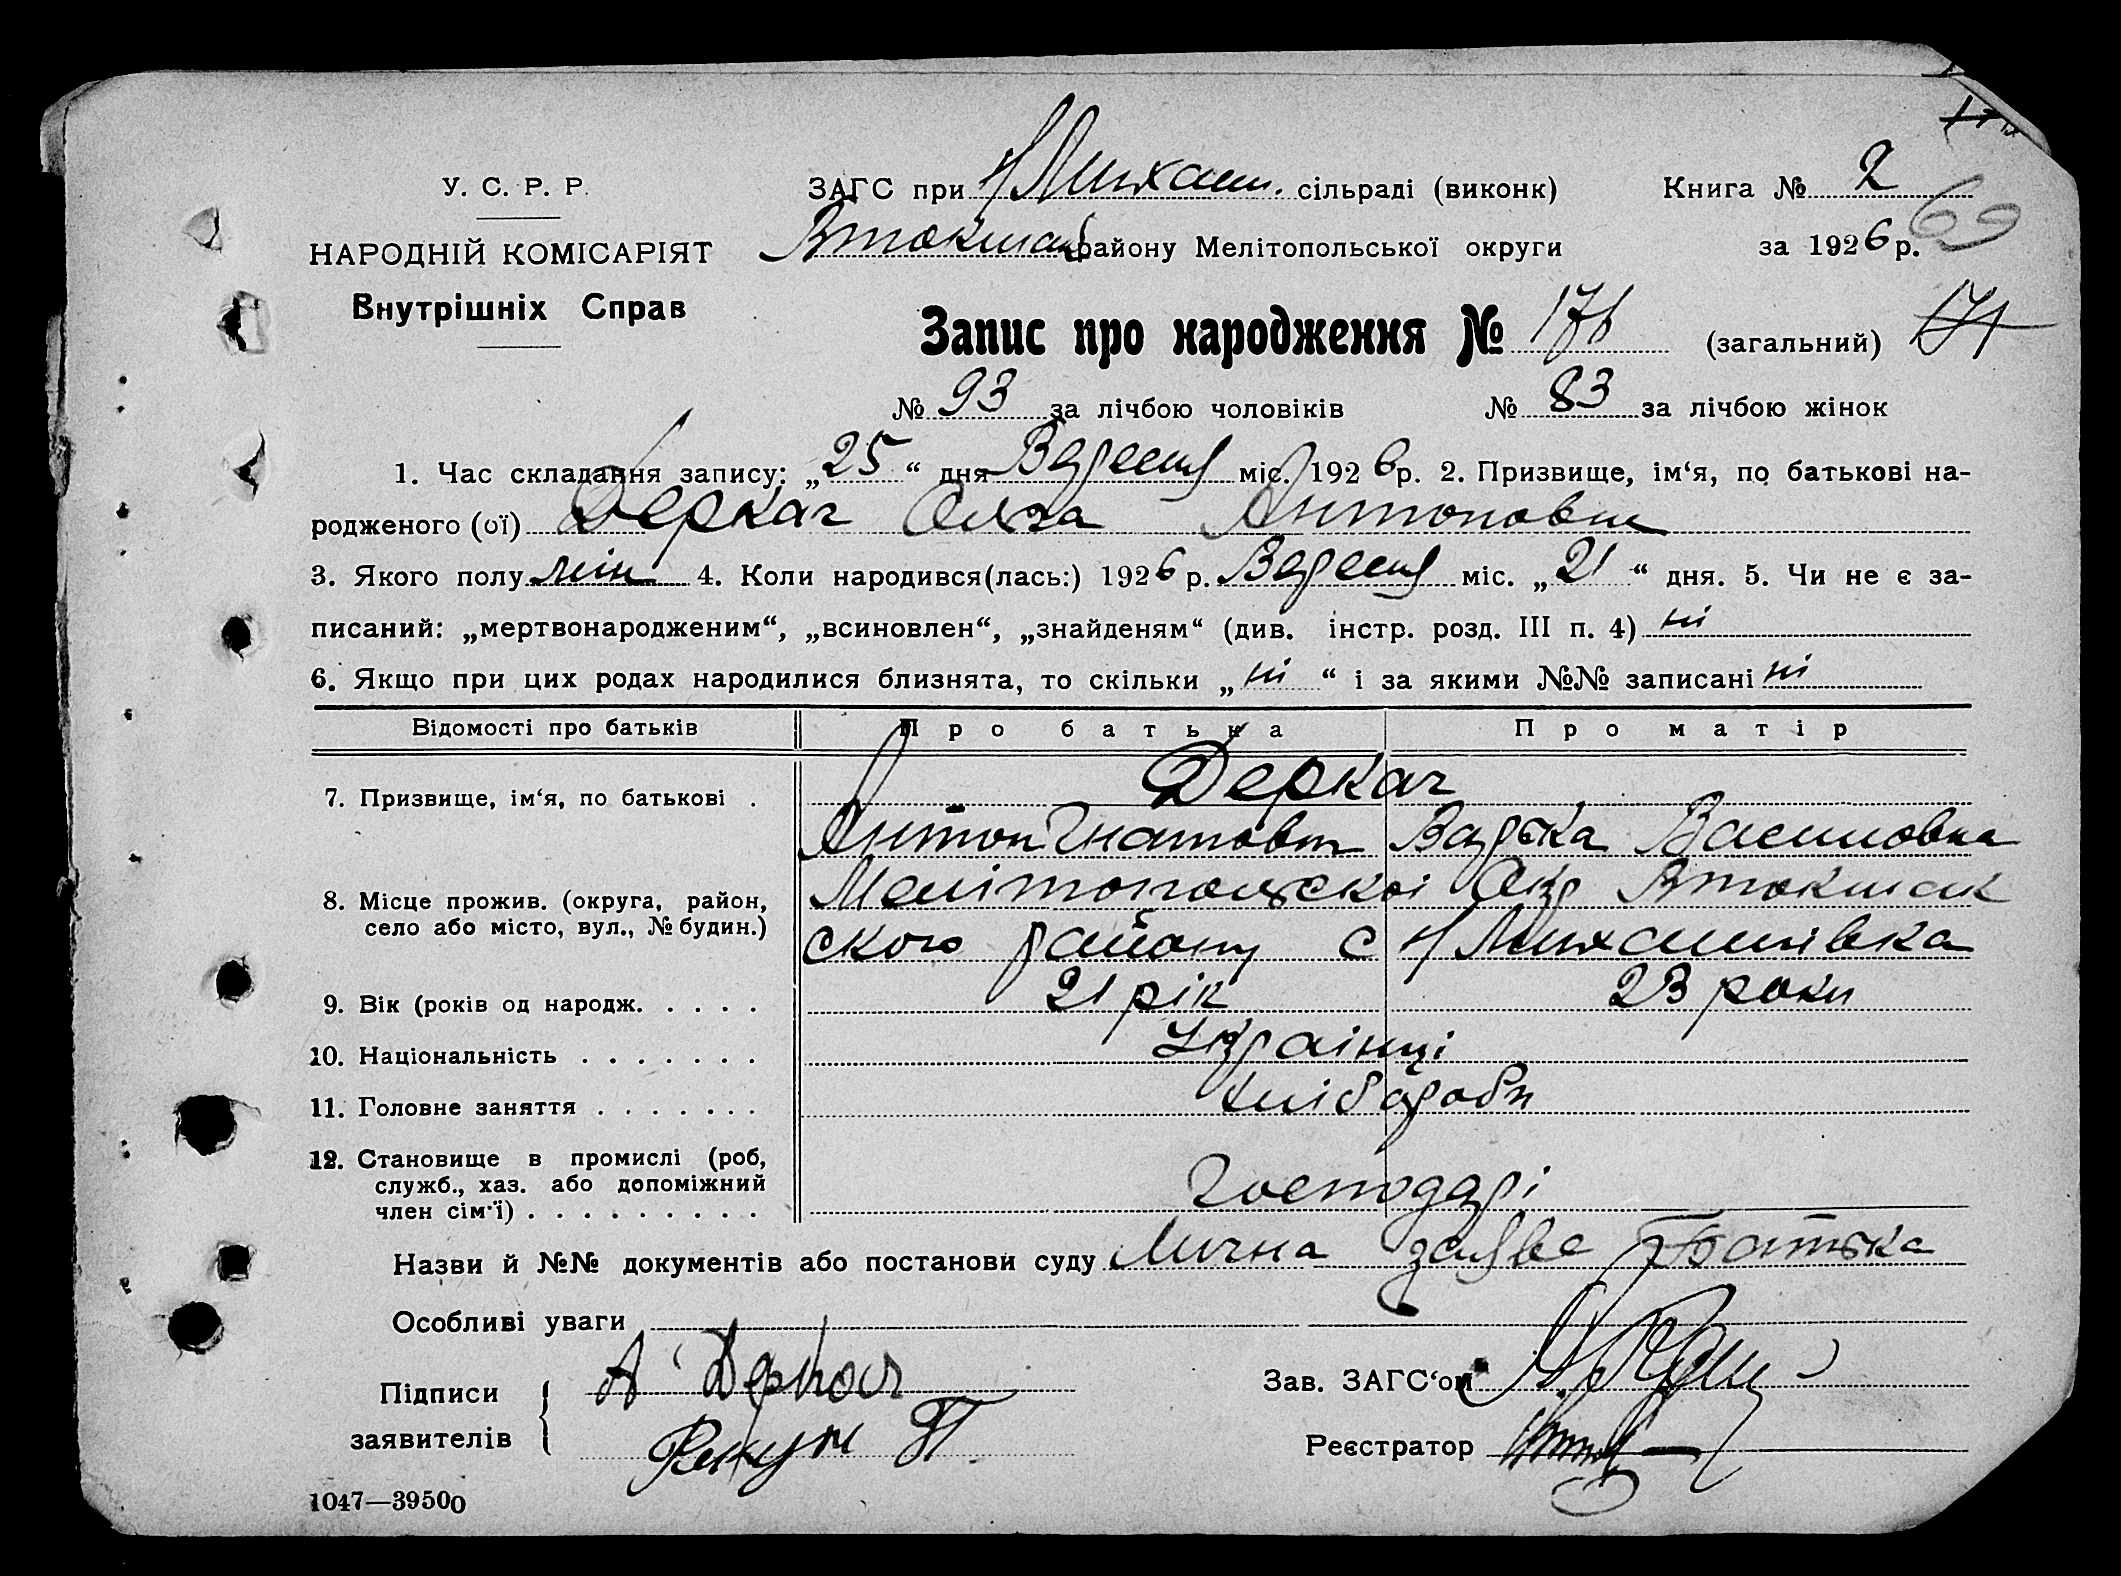 У. С. Р. Р.
НАРОДНІЙ КОМІСАРІЯТ
Внутрішніх Справ
ЗАГС при Н Михайл. сільраді (виконк)
Втокмак району Мелітопольської округи
Книга № 2
за 1926 р.
69
Запис про народження № 176 (загальний) 171
№ 93 за лічбою чоловіків № 83 за лічбою жінок
1. Час складання запису: „25“ дня Вересня міс. 1926 р. 2. Призвище, ім‘я, по батькові на-
родженого (ої) Деркач Ольга Антоновна
3. Якого полу жін 4. Коли народився(лась:) 1926 р. Вересня міс. „21“ дня. 5. Чи не є за-
писаний: „мертвонародженим“, „всиновлен“, „знайденям“ (див. інстр. розд. III п. 4) ні
6. Якщо при цих родах народилися близнята, то скільки „ні“ і за якими №№ записані ні
Відомості про батьків Про батька Про матір
7. Призвище, ім‘я, по батькові . Деркач
Антон Гнатович Варька Василовна
8. Місце прожив. (округа, район, село або місто, вул., № будин.) Мелітопольскоі Окр Втокмак
ского району с Н Михайлівка
9. Вік (років од народж. . . . . 21 рік 23 роки
10. Національність . . . . . . . Українці
11. Головне заняття . . . . . . . хлібороби
12. Становище в промислі (роб,
служб., хаз. або допоміжний
член сім‘ї) . . . . . . . . . Господарі
Назви й №№ документів або постанови суду Лична заява Батька
Особливі уваги
Підписи
заявителів
А Деркач
Зав. ЗАГС‘ом
Реєстратор
1047—39500